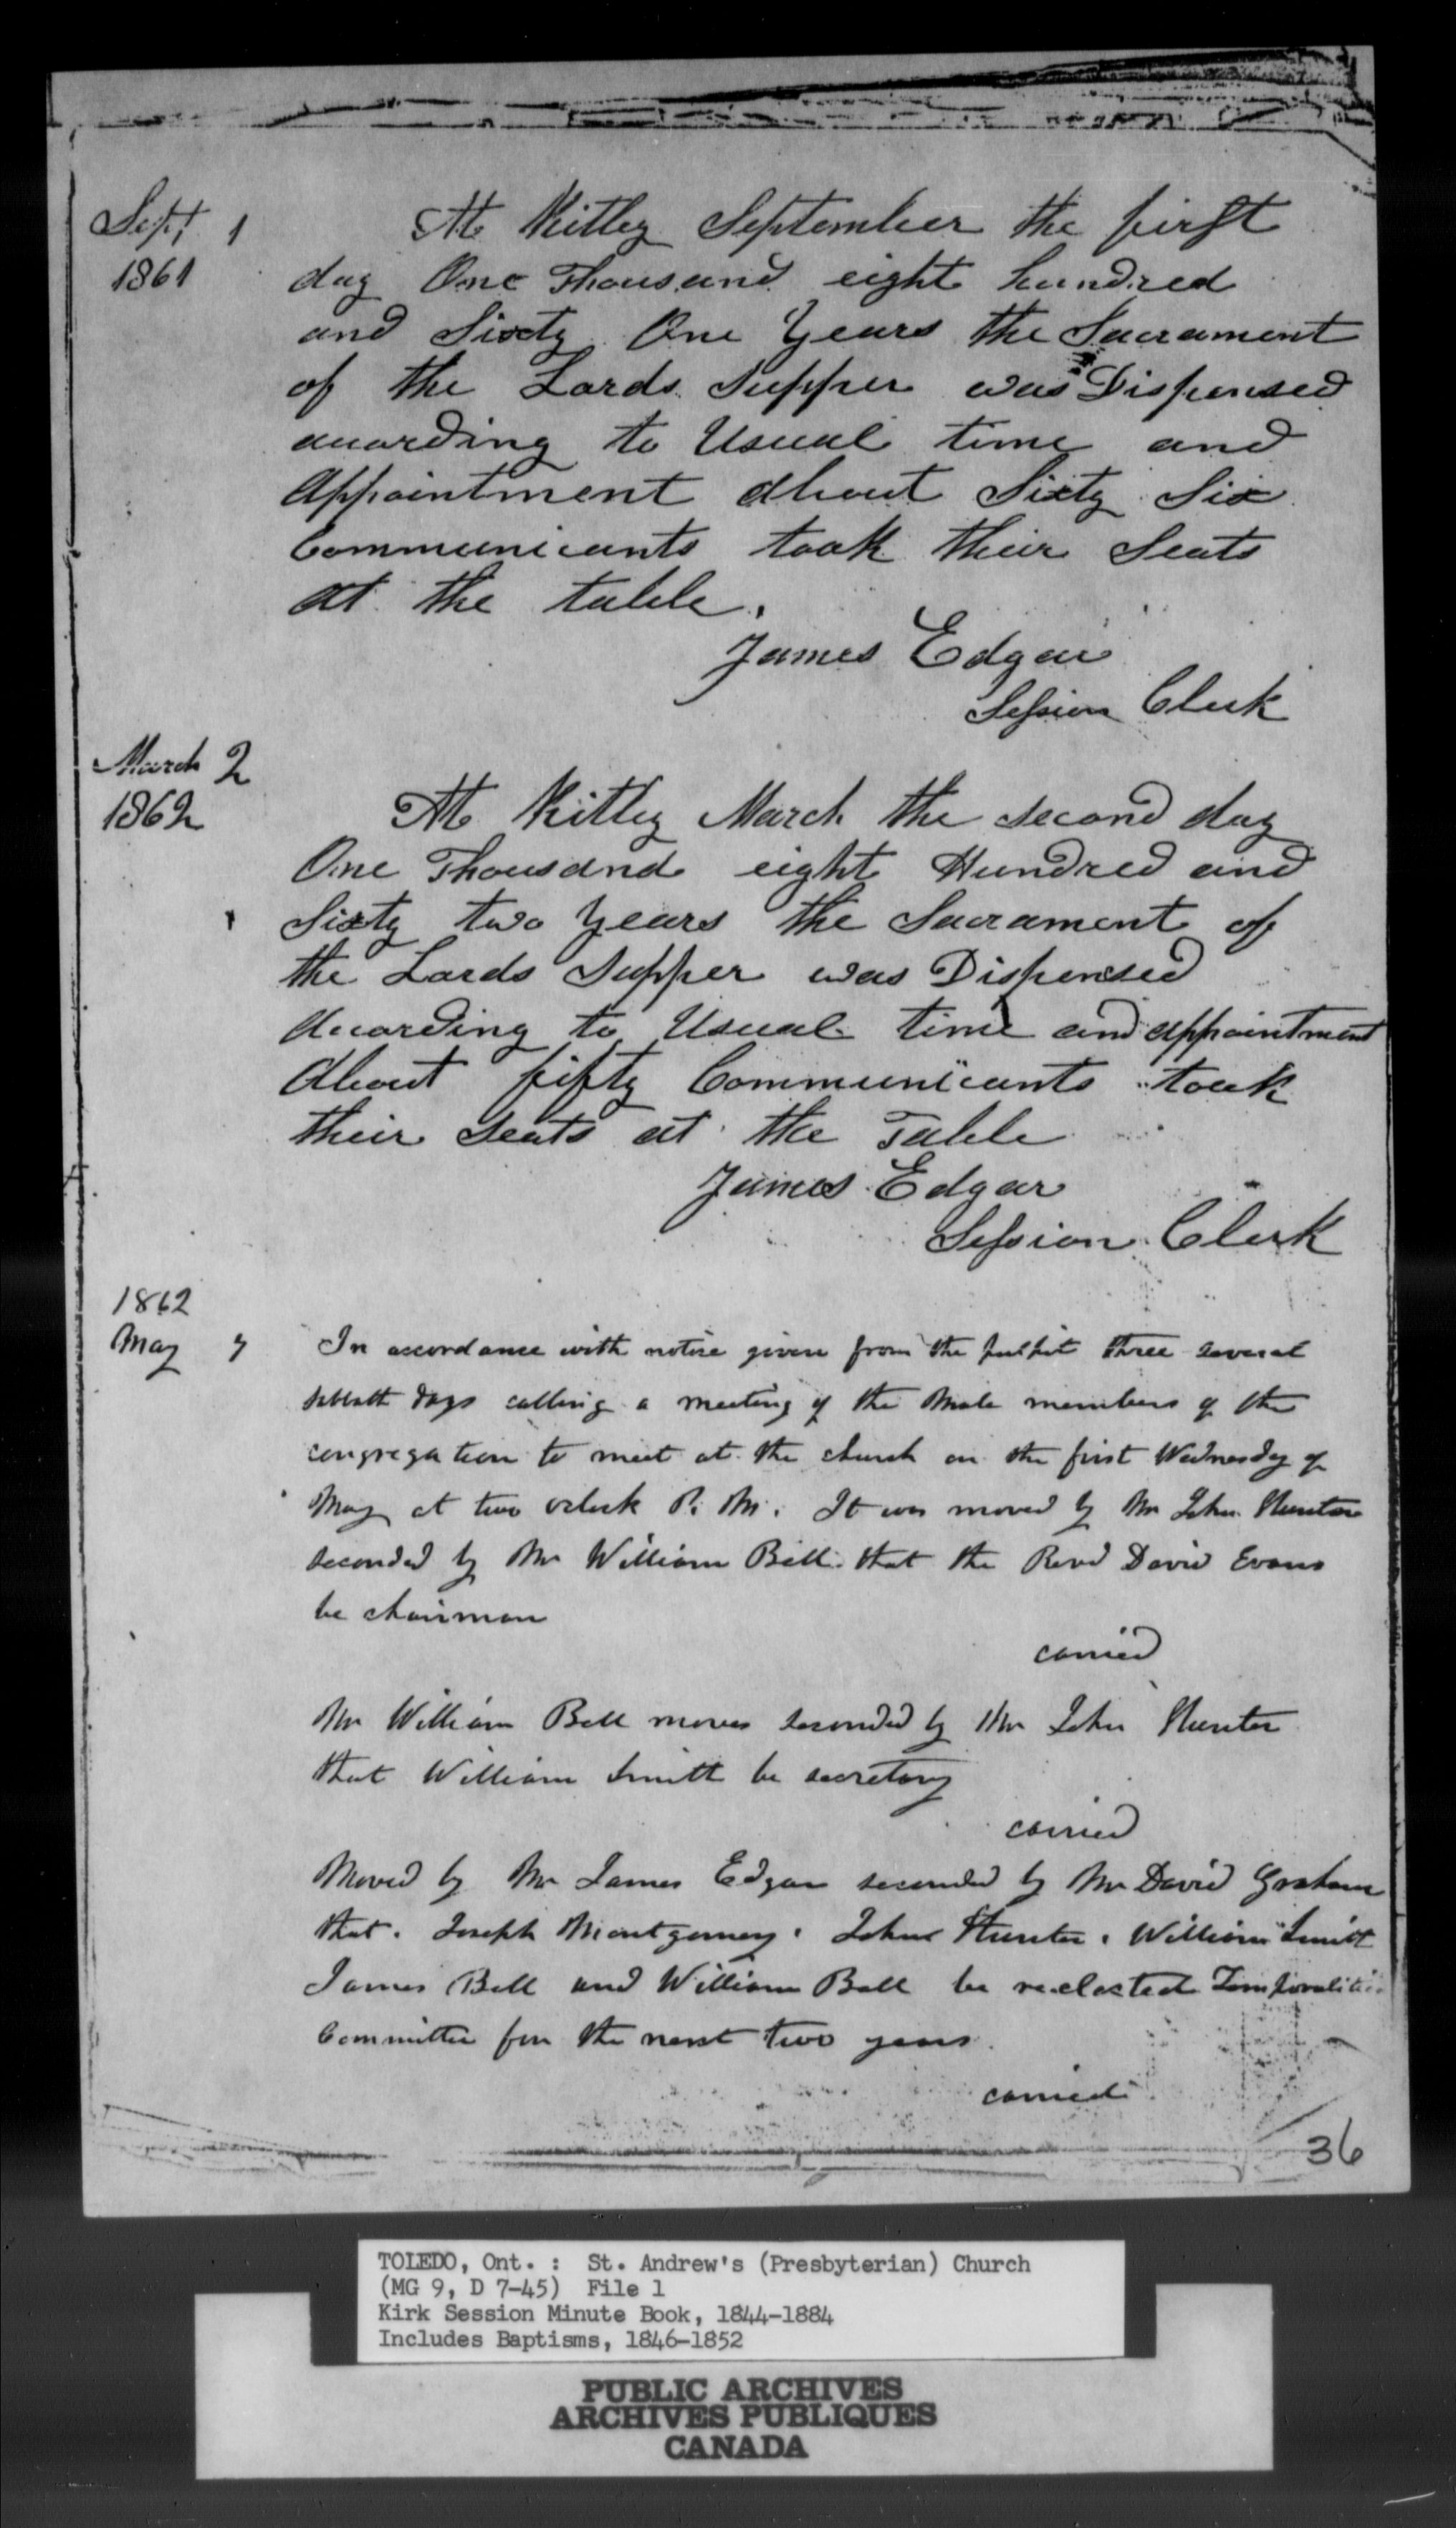 Sept 1
1861
At Kitley September the first
day One Thousand eight hundred
and Sixty One Years the Sacrament
of the Lords Supper was Dispensed
according to Usual time and
Appointment About Sixty Six
Communicants took their Seats
at the table.
James Edgar
Session Clerk
March 2
1862
At Kitley March the second day
One Thousand eight Hundred and
Sixty two Years the Sacrament of
the Lords Supper was Dispensed
According to Usual time and appointment
About fifty Communicants took
their Seats at the Table
James Edgar
Session Clerk
1862
May 7
In accordance with notice given from the pulpit three several
sabbath days calling a meeting of the Male members of the
congregation to meet at the church on the first Wednesday of
May at two oclock P. M. It was moved by Mr John Hunter
seconded by Mr William Bell that the Revd David Evans
be chairman
carried
Mr William Bell moves seconded by Mr John Hunter
that William Smith be secretary
carried
Moved by Mr James Edgar seconded by Mr David Graham
that Joseph Montgomery, John Hunter, William Smith
James Bell and William Bell be re-elected Temporalities
Committee for the next two years.
carried
36
TOLEDO, Ont. : St. Andrew's (Presbyterian) Church
(MG 9, D 7-45) File 1
Kirk Session Minute Book, 1844-1884
Includes Baptisms, 1846-1852
PUBLIC ARCHIVES
ARCHIVES PUBLIQUES
CANADA